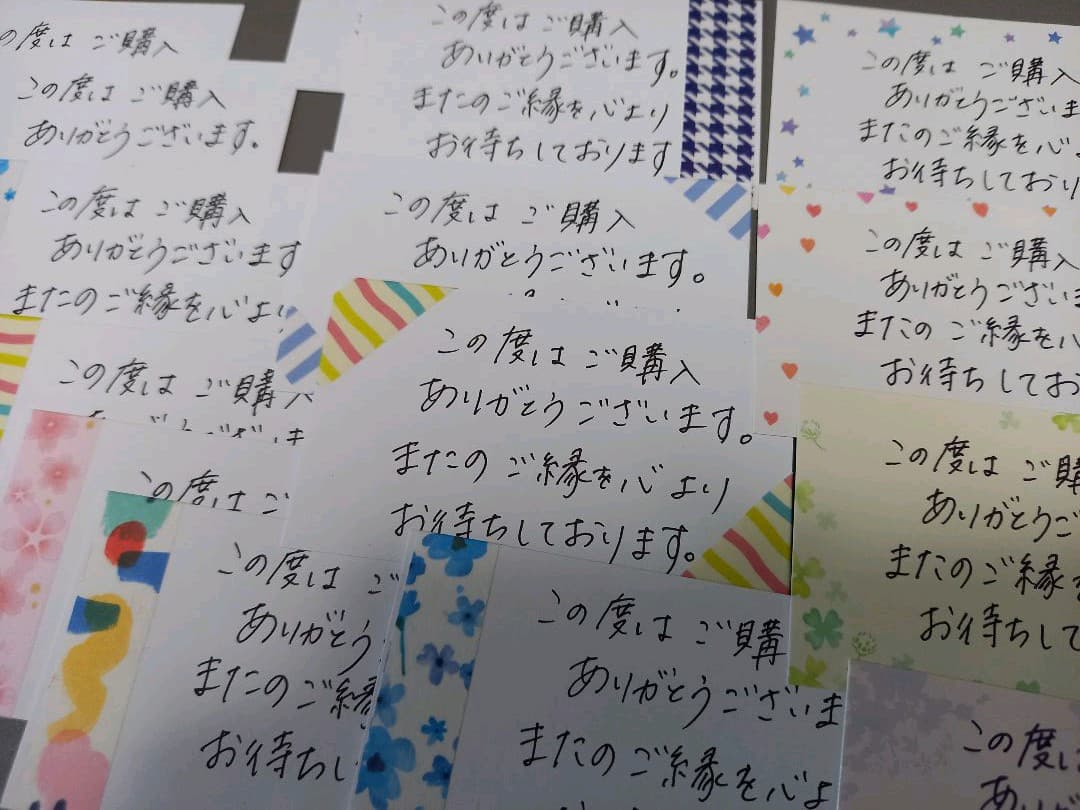 の度は ご購入
この度は ご購入
ありがとうございます。
この度は ご購入
ありがとうございます
またのご縁を心より
この度は ご購入
この度は ご
この度は ご
ありがとう
またのご縁
お待ちし
この度は ご購入
ありがとうございます。
またのご縁を心より
お待ちしております
この度は ご購入
ありがとうございます。
この度は ご購入
ありがとうございます。
またの ご縁を心より
お待ちしております。
この度は ご購
ありがとうございま
またの ご縁を心よ
この度は ご購入
ありがとうございま
またのご縁を心
お待ちしており
この度は ご購入
ありがとうござい
またの ご縁を心
お待ちしてお
この度は ご購
ありがとうご
またのご縁
お待ちして
この度は